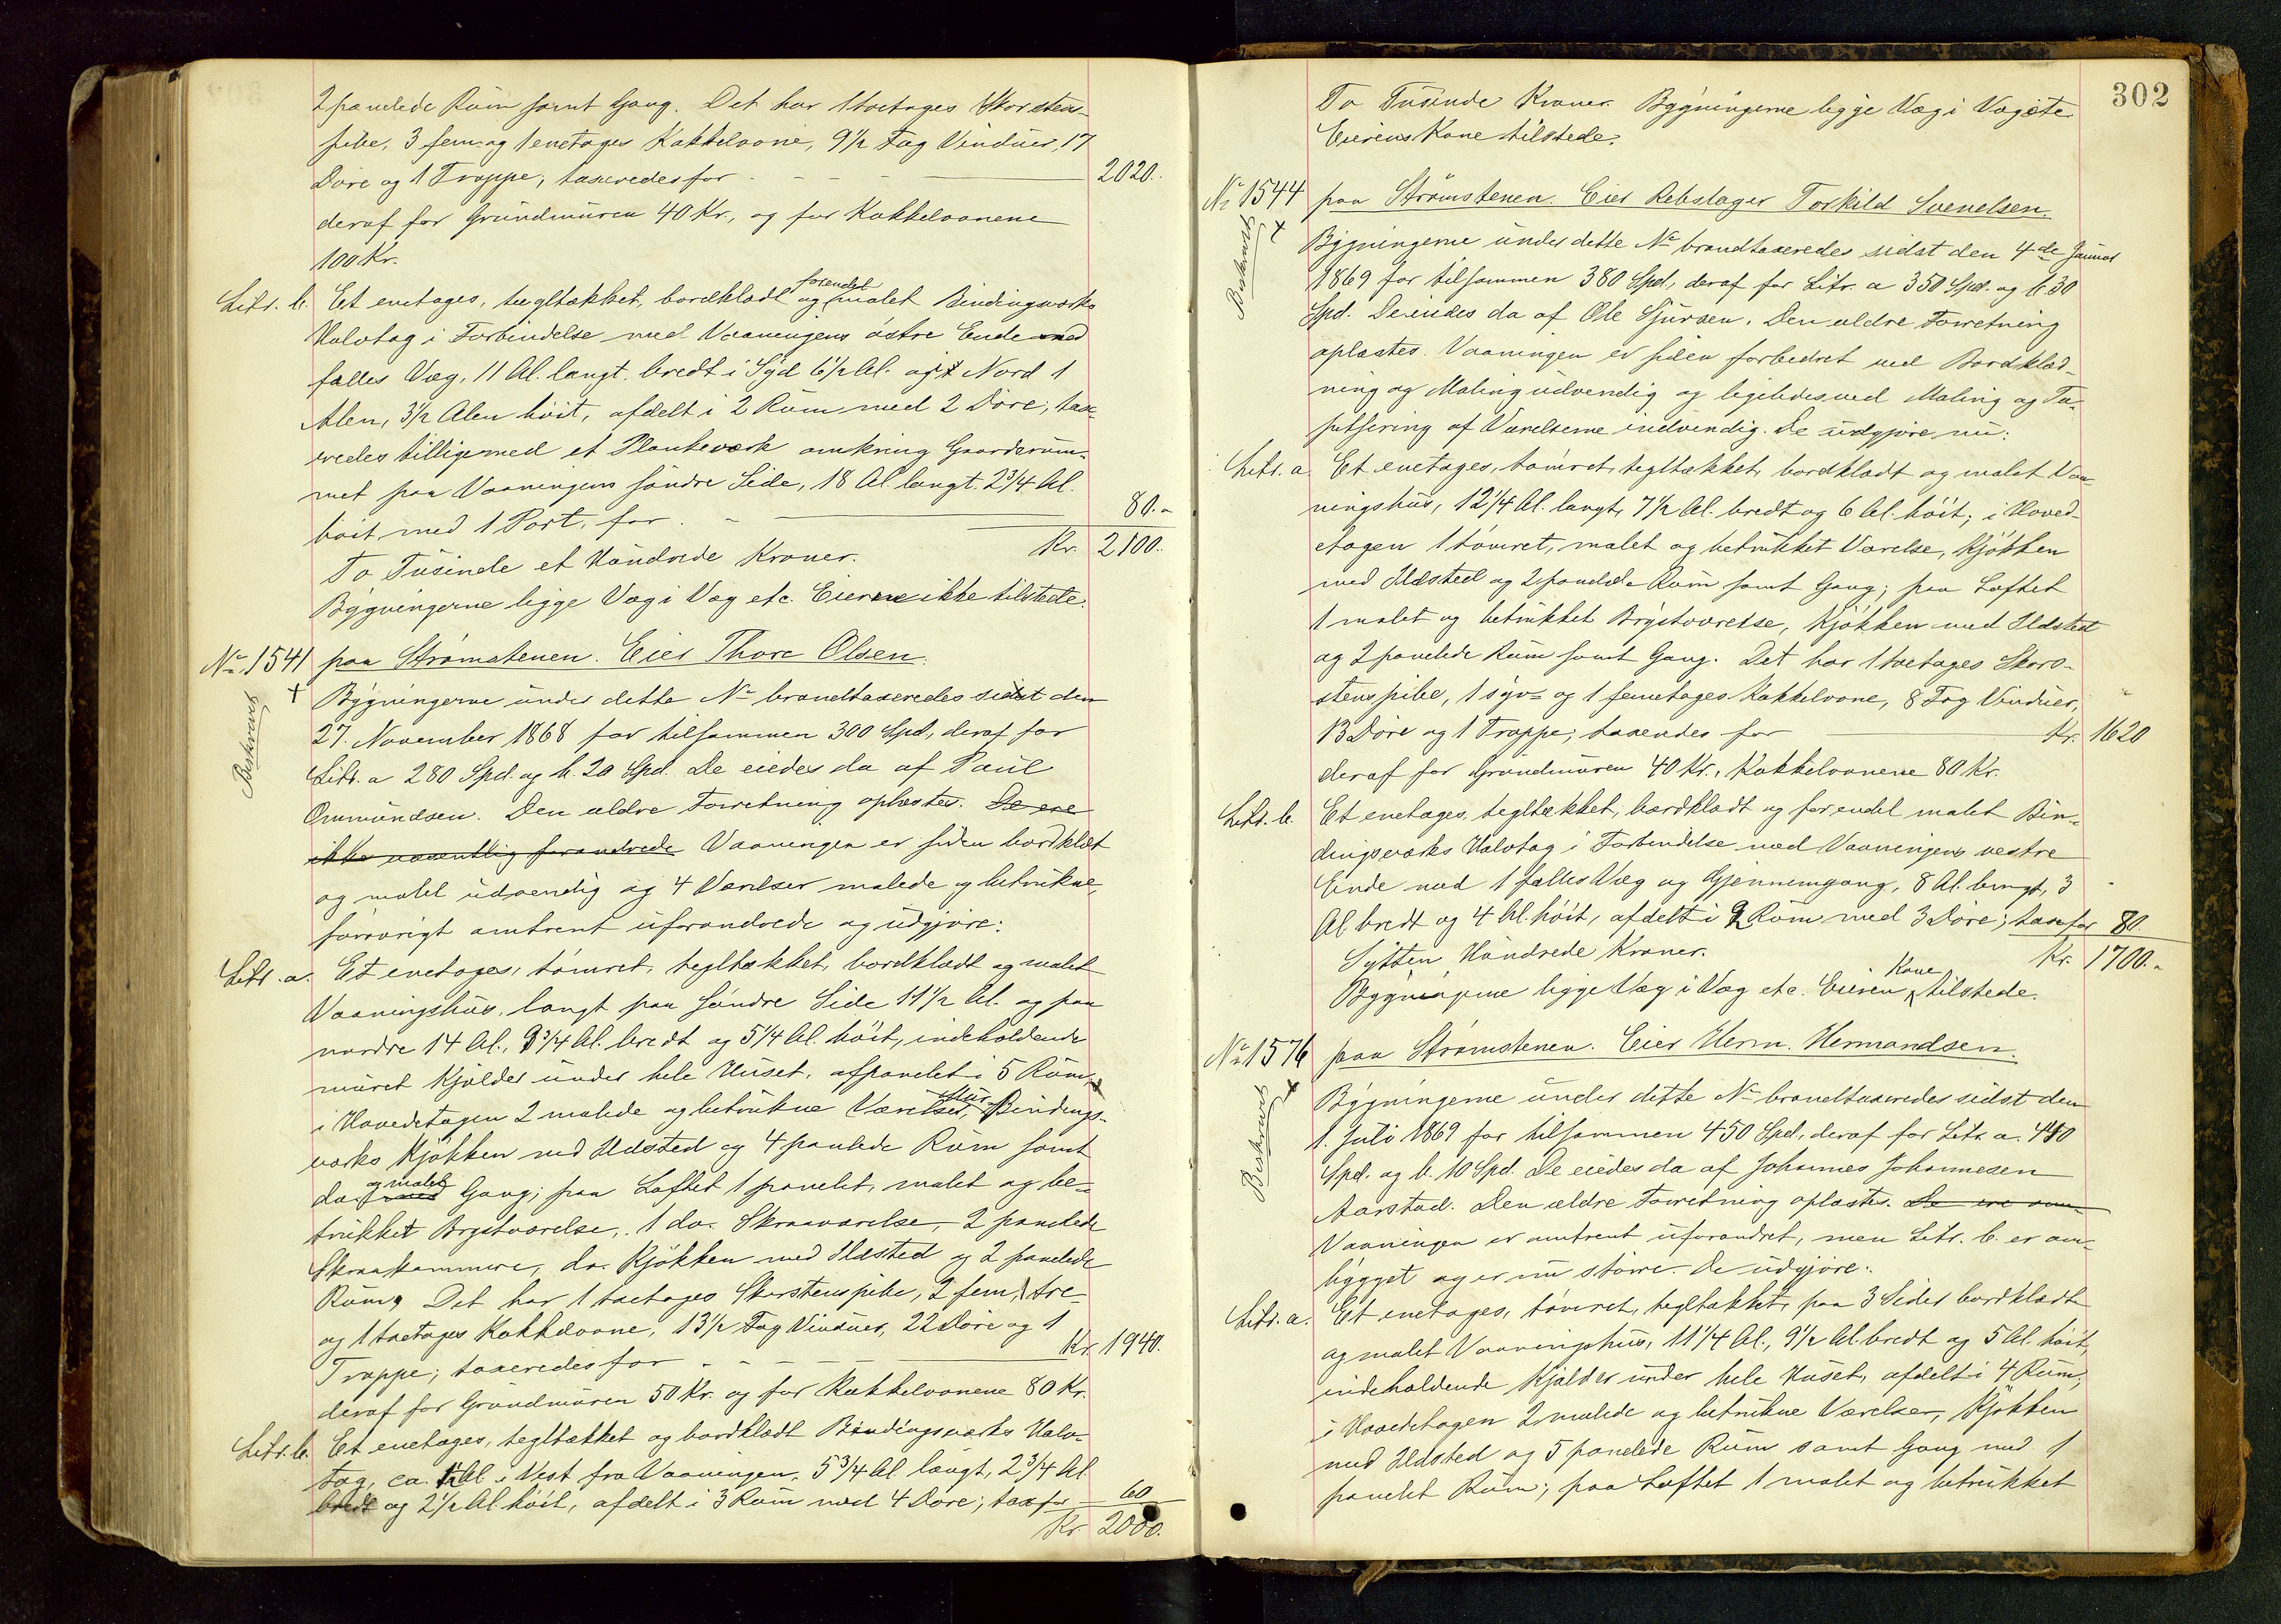 2 panelede Rum samt Gang. Det har 1 toetages Skorstens-
pibe, 3 fem- og 1 enetages Kakkelovne, 9 1/2 Fag Vinduer, 17
Döre og 1 Trappe; taxeredes for 2020.
deraf for Grundmuren 40 Kr., og for Kakkelovnene
100 Kr.
Litr. b. Et enetages, tegltækket, bordklædt og forendel malet Bindingsværks
Halvtag i Forbindelse med Vaaningens östre Ende med
fælles Væg, 11 Al. langt, bredt i Syd 6 1/2 Al. og i Nord 1
Alen, 3 1/2 Alen höit, afdelt i 2 Rum med 2 Döre; tax-
eredes tilligemed et Plankeværk omkring Gaardsrum-
met paa Vaaningens söndre Side, 18 Al. langt, 2 3/4 Al.
höit med 1 Port, for 80.-
To Tusinde et Hundrede Kroner. Kr. 2100.
Bygningerne ligge Væg i Væg etc. Eieren ikke tilstede.
No 1541 paa Strömstenen. Eier Thore Olsen.
Beskrevet
Bygningerne under dette No brandtaxeredes sidst den
27. November 1868 for tilsammen 300 Spd., deraf for
Litr. a 280 Spd. og b. 20 Spd. De eiedes da af Paul
Ommundsen. Den ældre Forretning oplæstes. De ere
ikke væsentlig forandrede Vaaningen er siden bordklædt
og malet udvendig og 4 Værelser malede og betrukne,
forövrigt omtrent uforandrede og udgjöre:
Litr. a. Et enetages, tömret, tegltækket, bordklædt og malet
Vaaningshus, langt paa söndre Side 11 1/2 Al. og paa
nordre 14 Al., 9 3/4 Al. bredt og 5 1/4 Al. höit, indeholdende
muret Kjælder under hele Huset, afpanelet i 5 Rum,
i Hovedetagen 2 malede og betrukne Værelser, Bindings-
værks Kjökken med Ildsted og 4 panelede Rum samt
do. og malet Gang; paa Loftet 1 panelet, malet og be-
trukket Brystværelse, 1 do. Skraaværelse, 2 panelede
Skraakammere, do. Kjökken med Ildsted og 2 panelede
Rum. Det har 1 toetages Skorstenspibe, 2 fem, 1 tre-
og 1 toetages Kakkelovne, 13 1/2 Fag Vinduer, 22 Döre og 1
Trappe; taxeredes for Kr. 1940.
deraf for Grundmuren 50 Kr. og for Kakkelovnene 80 Kr.
Litr. b. Et enetages, tegltækket og bordklædt Bindingsværks Halv-
tag, ca. 1/2 Al. i Vest fra Vaaningen, 5 3/4 Al. langt, 2 3/4 Al.
bredt og 2 1/2 Al. höit, afdelt i 3 Rum med 4 Döre; tax for 60
Kr. 2000.
302
To Tusinde Kroner. Bygningerne ligge Væg i Væg etc.
Eierens Kone tilstede.
No 1544 paa Strömstenen. Eier Rebslager Torkild Svendsen.
Beskrevet
Bygningerne under dette No brandtaxeredes sidst den 4de Januar
1869 for tilsammen 380 Spd., deraf for Litr. a 350 Spd. og b. 30
Spd. De eiedes da af Ole Sjursen. Den ældre Forretning
oplæstes. Vaaningen er siden forbedret med Bordklæd-
ning og Maling udvendig og ligeledes med Maling og Ta-
petsering af Værelserne indvendig. De udgjöre nu:
Litr. a Et enetages, tömret, tegltækket, bordklædt og malet Vaa-
ningshus, 12 1/4 Al. langt, 7 1/2 Al. bredt og 6 Al. höit; i Hoved-
etagen 1 tömret, malet og betrukket Værelse, Kjökken
med Ildsted og 2 panelede Rum samt Gang; paa Loftet
1 malet og betrukket Brystværelse, Kjökken med Ildsted
og 2 panelede Rum samt Gang. Det har 1 toetages Skor-
stenspibe, 1 syv- og 1 femetages Kakkelovne, 8 Fag Vinduer,
13 Döre og 1 Trappe; taxeredes for Kr. 1620
deraf for Grundmuren 40 Kr., Kakkelovnene 80 Kr.
Litr. b. Et enetages, tegltækket, bordklædt og forendel malet Bin-
dingsværks Halvtag i Forbindelse med Vaaningens vestre
Ende med 1 fælles Væg og Gjennemgang, 8 Al. langt, 3
Al bredt og 4 Al. höit, afdelt i 2 Rum med 3 Döre; tax for 80.
Sytten Hundrede Kroner. Kr. 1700.-
Bygningerne ligge Væg i Væg etc. Eieren Kone tilstede.
No 1576 paa Strömstenen. Eier Herm. Hermandsen.
Beskrevet
Bygningerne under dette No brandtaxeredes sidst den
1. Juli 1869 for tilsammen 450 Spd., deraf for Litr. a. 440
Spd. og b. 10 Spd. De eiedes da af Johannes Johannesen
Aarstad. Den ældre Forretning oplæstes. De ere om-
Vaaningen er omtrent uforandret, men Litr. b. er om-
bygget og er nu större. De udgjöre:
Litr. a. Et enetages, tömret, tegltækket, paa 3 Sider bordklædt
og malet Vaaningshus, 11 1/4 Al., 9 1/2 Al. bredt og 5 Al. höit,
indeholdende Kjælder under hele Huset, afdelt i 4 Rum;
i Hovedetagen 2 malede og betrukne Værelser, Kjökken
med Ildsted og 5 panelede Rum samt Gang med 1
panelet Rum; paa Loftet 1 malet og betrukket